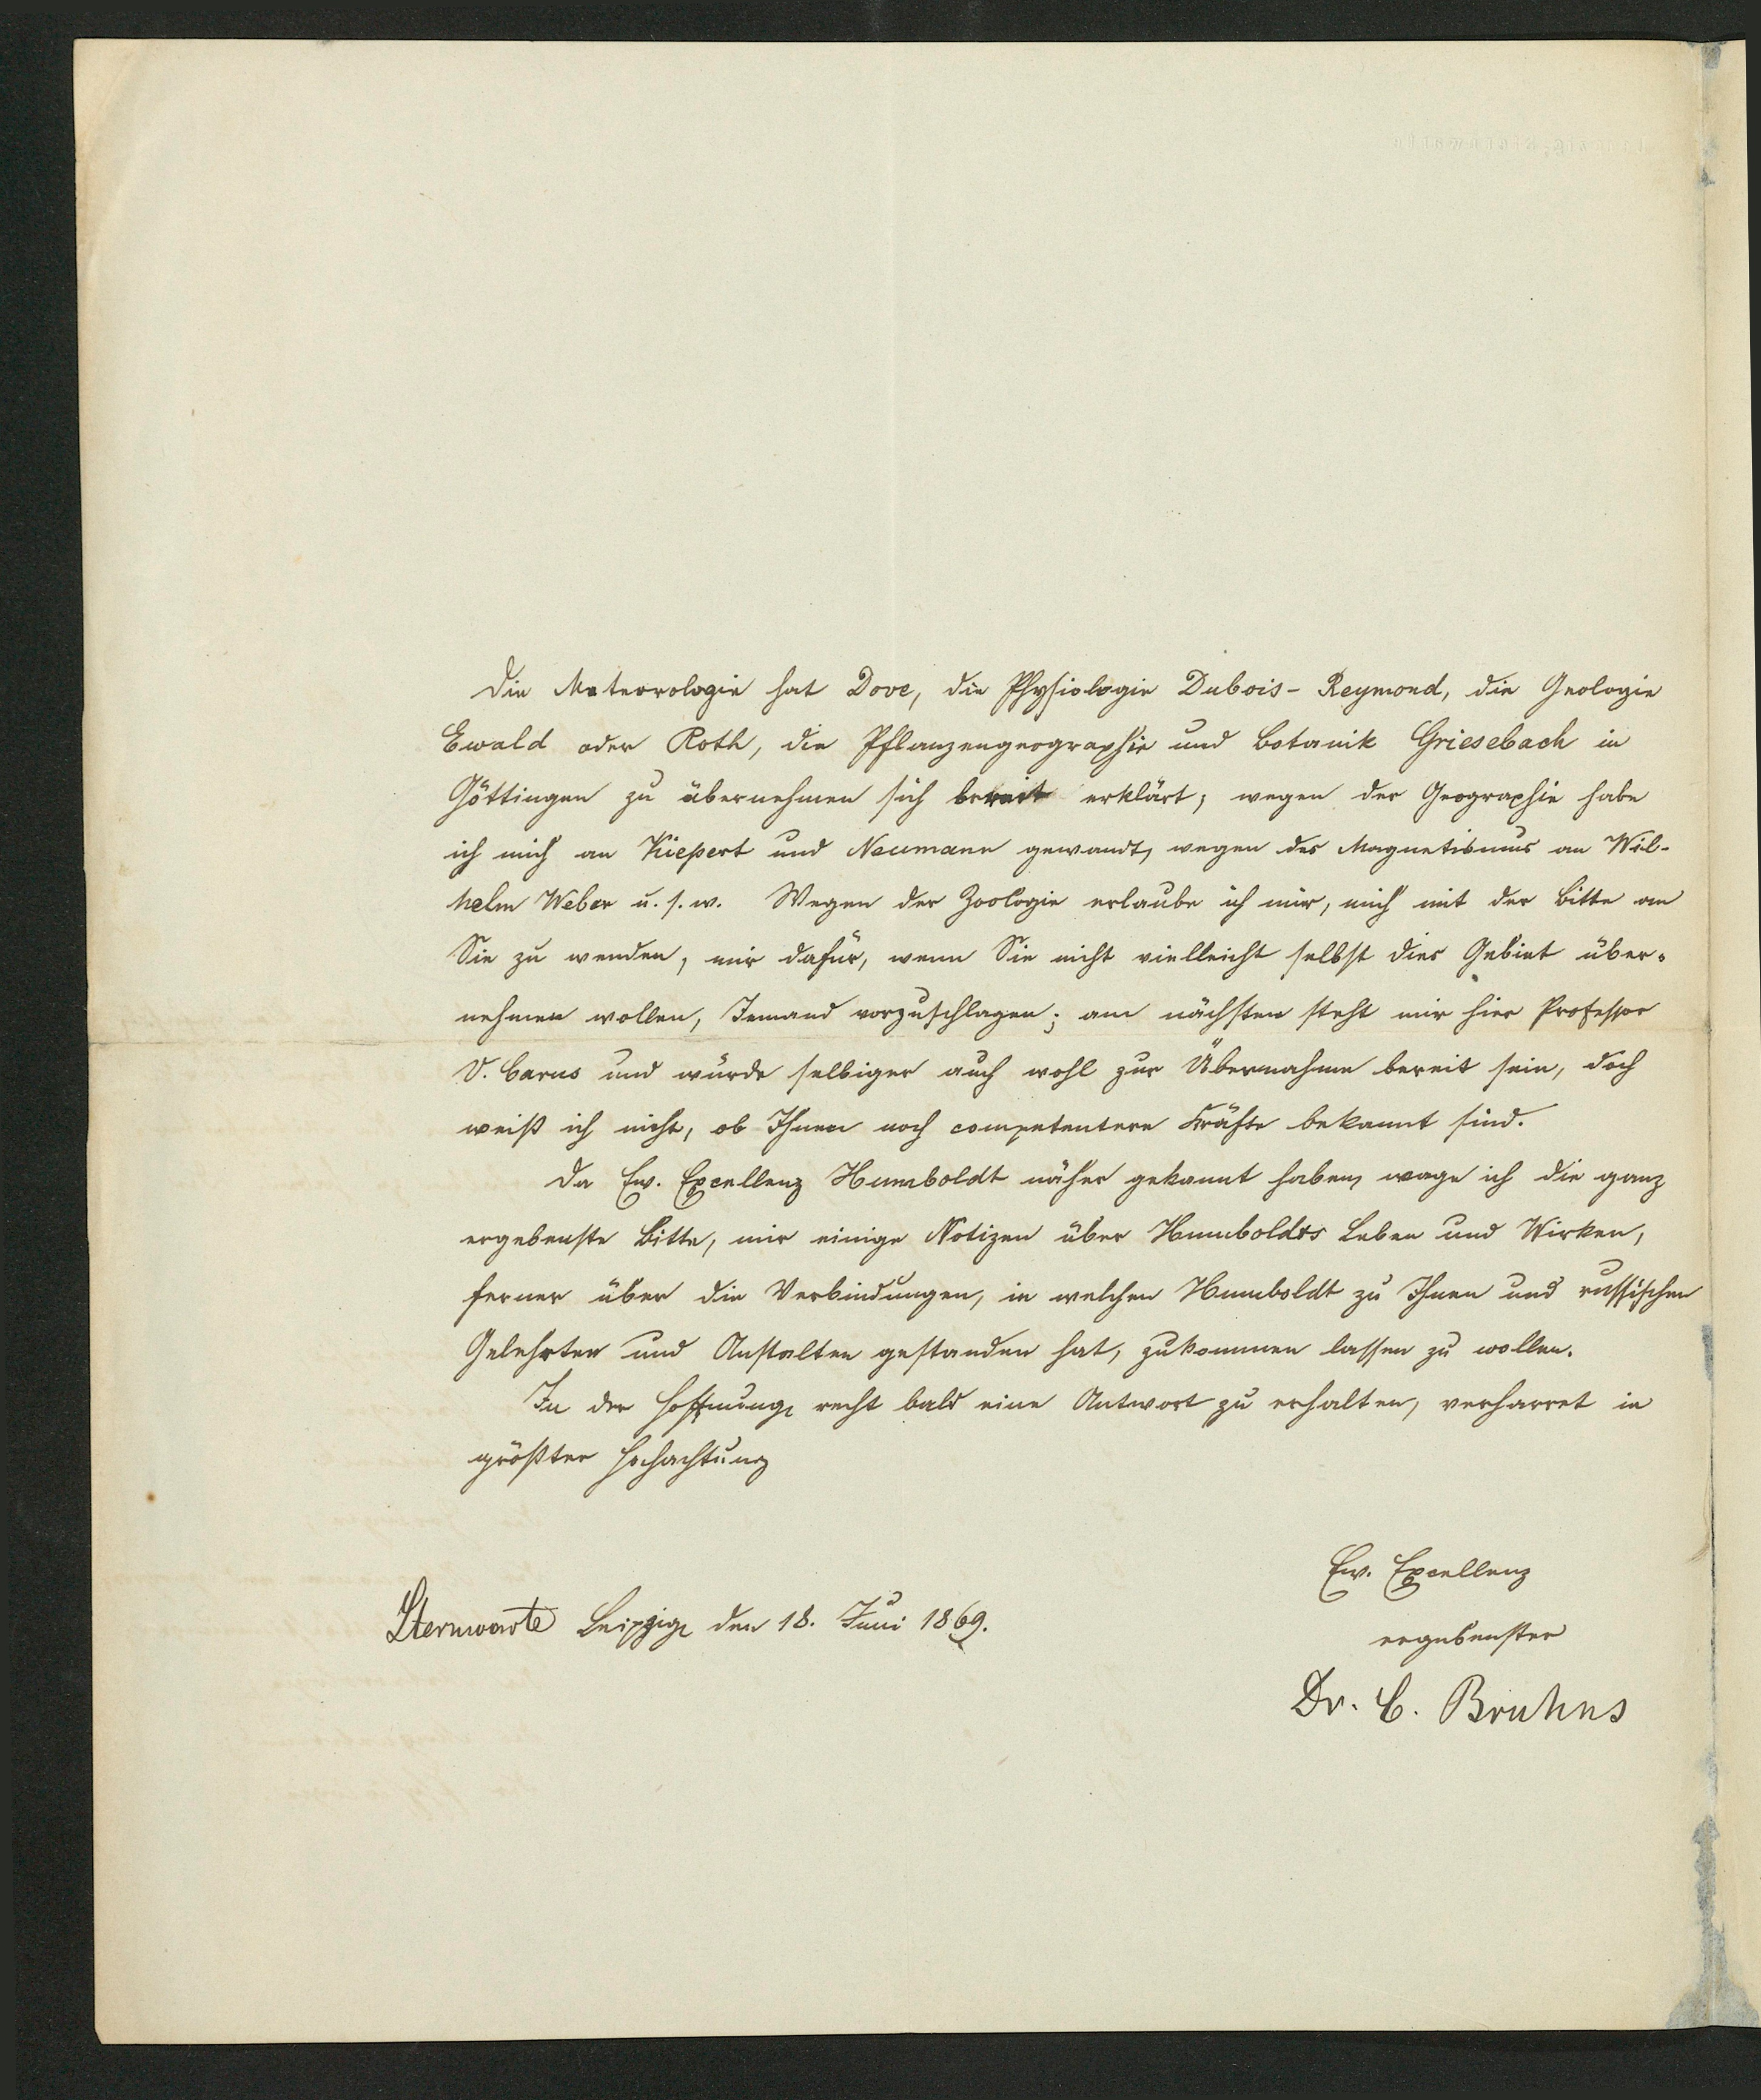 Die Meteorologie hat Dove, die Physiologie Dubois-Reymond, die Geologie
Ewald oder Roth, die Pflanzengeographie und Botanik Griesebach in
Göttingen zu übernehmen sich bereit erklärt; wegen der Geographie habe
ich mich an Kiepert und Neumann gewandt, wegen des Magnetismus an Wil-
helm Weber u. s. w. Wegen der Zoologie erlaube ich mir, mich mit der Bitte an
Sie zu wenden, mir dafür, wenn Sie nicht vielleicht selbst dies Gebiet über-
nehmen wollen, Jemand vorzuschlagen; am nächsten steht mir hier Professor
V. Carus und würde selbiger auch wohl zur Übernahme bereit sein, doch
weiß ich nicht, ob Ihnen noch competentere Kräfte bekannt sind.
Da Ew. Excellenz Humboldt näher gekannt haben, wage ich die ganz
ergebenste Bitte, mir einige Notizen über Humboldts Leben und Wirken,
ferner über die Verbindungen, in welchen Humboldt zu Ihnen und russischen
Gelehrten und Anstalten gestanden hat, zukommen lassen zu wollen.
In der Hoffnung, recht bald eine Antwort zu erhalten, verharret in
größter Hochachtung
Ew. Excellenz
Sternwarte Leipzig den 18. Juni 1869.
ergebenster
Dr. C. Bruhns